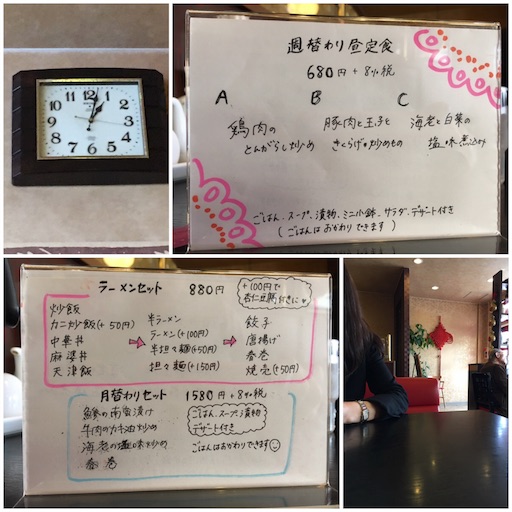 12
1
2
3
4
5
6
7
8
9
10
11
週替わり昼定食
680円 + 8%税
A B C
鶏肉の 豚肉と玉子と 海老と白菜の
とんがらし炒め きくらげの炒めもの 塩味煮込み
ごはん、スープ、漬物、ミニ小鉢、サラダ、デザート付き
(ごはんはおかわりできます)
ラーメンセット 880円
+100円で
杏仁豆腐付きに
炒飯
カニ炒飯(+50円)
中華丼
麻婆丼
天津飯
半ラーメン
ラーメン(+100円)
半担々麺(+50円)
担々麺(+150円)
餃子
唐揚げ
春巻
焼売(+50円)
月替わりセット 1580円 + 8%税
鰺の南蛮漬け
牛肉のカキ油炒め
海老の塩味炒め
春巻
ごはん、スープ、漬物
デザート付き
ごはんはおかわりできます